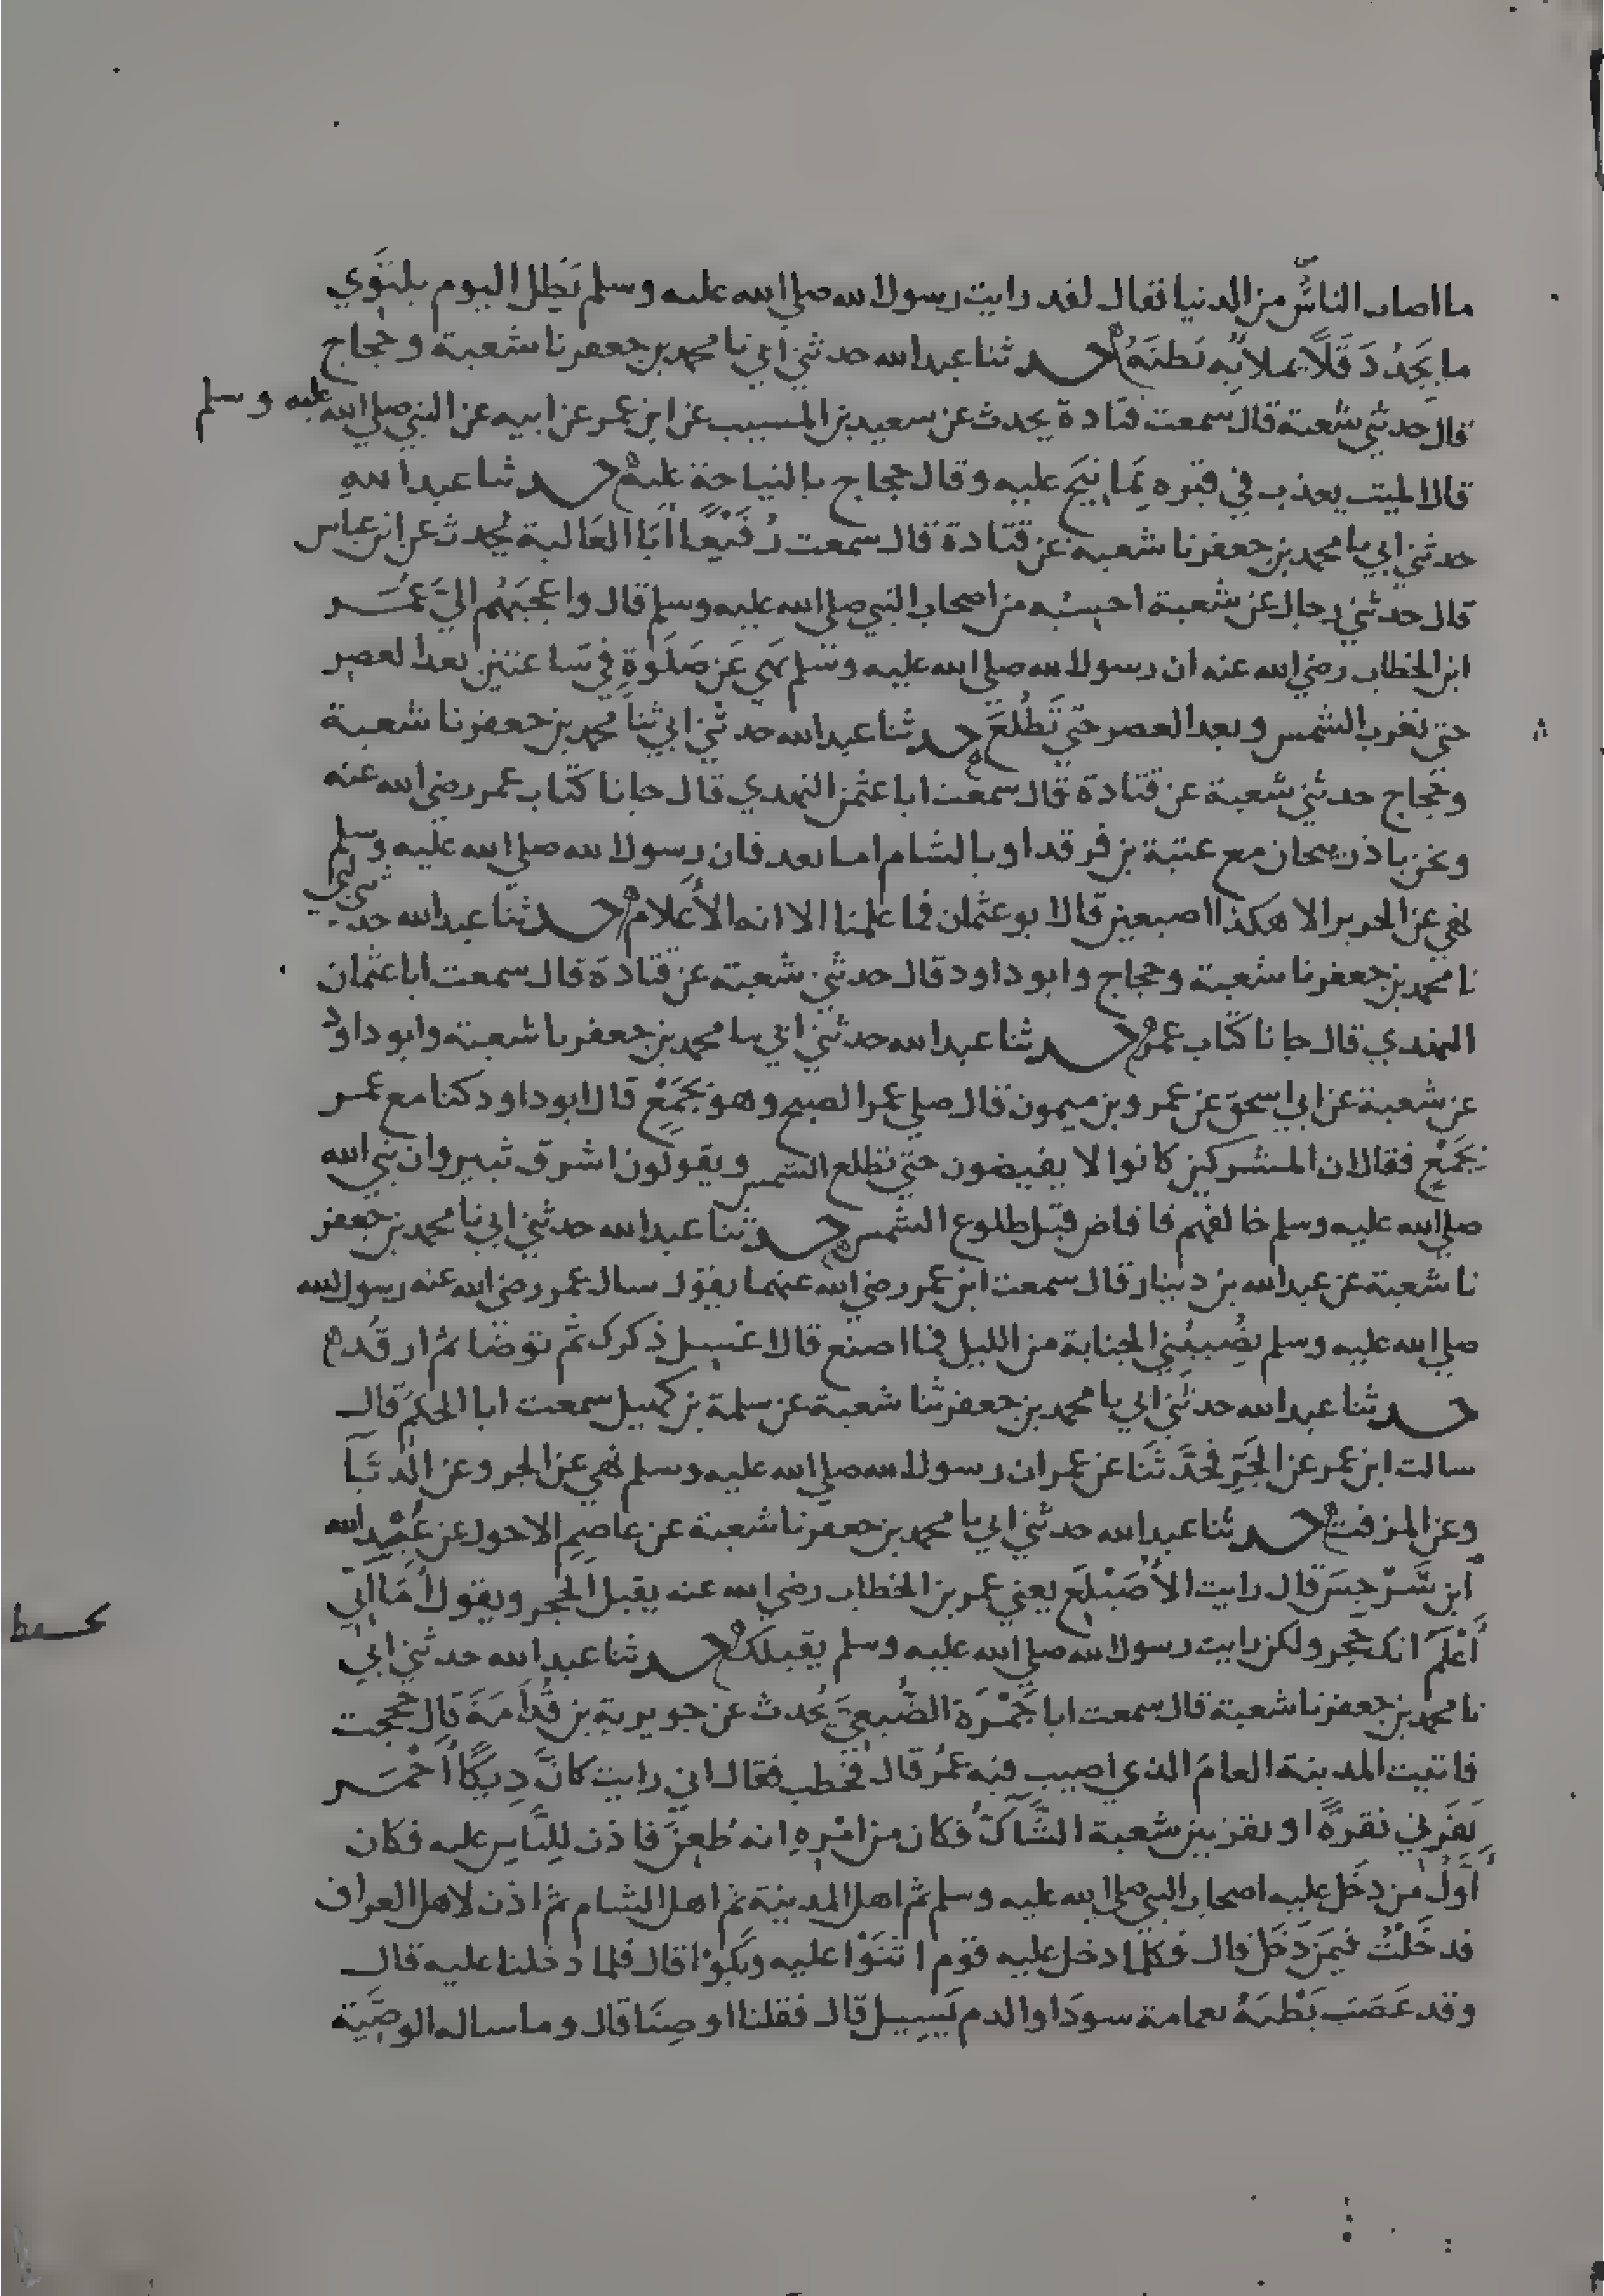 ما اصاب الناسُ من الدنيا فقال لقد رايت رسول الله صلى الله عليه وسلم يَظِل اليوم يلتَوي
ما يَجِدُ دَقَلًا يملا بِه بَطنَهُ حدثنا عبدالله حدثني ابي نا محمد بن جعفر نا شعبة وحجاج
قال حدثني شعبة قال سمعت قتادة يحدث عن سعيد بن المسيب عن ابن عمر عن ابيه عن النبي صلى الله عليه وسلم
قال الميت يعذب في قبره بِمَا نِيحَ عليه وقال حجاج بالنياحة عليه حدثنا عبدالله
حدثني ابي نا محمد بن جعفر نا شعبة عن قتادة قال سمعت رُفَيْعًا اَبَا العَالية يُحدث عن ابن عباس
قال حدثني رجال عن شعبة احسبُه من اصحاب النبي صلى الله عليه وسلم قال واعجَبَهُم اليَّ عُمَر
ابن الخطاب رضي الله عنه ان رسول الله صلى الله عليه وسلم نهي عَن صَلَوةٍ في سَاعتين بعد العصر
حتي تغرب الشمس وبعد العصر حتي تَطلُعَ حدثنا عبدالله حدثني ابي ثنا محمد بن جعفر نا شعبة
وحجاج حدثني شعبة عن قتادة قال سمعت ابا عثمن النهدي قال جانا كتاب عمر رضي الله عنه
ونحن باذربيجان مع عتبة بن فرقد او بالشام اما بعد فان رسول الله صلى الله عليه وسلم
نهي عن الحرير الا هكذا اصبعين قال ابو عثمان فما علمنا الا انه الاَعلام حدثنا عبدالله حدثني ابي
نا محمد بن جعفر نا شعبة وحجاج وابو داود قال حدثني شعبة عن قتادة قال سمعت ابا عثمان
النهدي قال جانا كتاب عمر حدثنا عبدالله حدثني ابي نا محمد بن جعفر نا شعبة وابو داود
عن شعبة عن ابي اسحق عن عمرو بن ميمون قال صلي عمر الصبح وهو بجَمْعٍ قال ابو داود كنا مع عمر
بجَمْعٍ فقال ان المشركين كانوا لا يفيضون حتي تطلع الشمس ويقولون اشرق ثبير وان نبي الله
صلي الله عليه وسلم خالفهم فافاض قبل طلوع الشمس حدثنا عبدالله حدثني ابي نا محمد بن جعفر
نا شعبة عن عبدالله بن دينار قال سمعت ابن عمر رضي الله عنهما يقول سال عمر رضي الله عنه رسول الله
صلي الله عليه وسلم تُصِيبُني الجنابة من الليل فما اصنع قال اغسل ذكرك ثم توضا ثم ارقُد
حدثنا عبدالله حدثني ابي نا محمد بن جعفر ثنا شعبة عن سلمة بن كهيل سمعت ابا الحكم قال
سالت ابن عمر عن الجَرِّ فحَدَّثَنَا عن عمر ان رسول الله صلي الله عليه وسلم نهي عن الجر وعن الدُّبَّا
وعن المزفت حدثنا عبدالله حدثني ابي نا محمد بن جعفر نا شعبة عن عاصم الاحول عن عَبْدالله
ابن سَرْجِسَ قال رايت الاُصَيْلَع يعني عمر بن الخطاب رضي الله عنه يقبل الحجر ويقول اَمَا اِنّي
اَعْلَمُ انك حجر ولكن رايت رسول الله صلي الله عليه وسلم يقبلك حدثنا عبدالله حدثني ابي
نا محمد بن جعفر نا شعبة قال سمعت ابا جَمْرَة الضُّبَعِيَّ يُحدث عن جويرية بن قُدَامَةَ قال حججت
فاتيت المدينة العامَ الذي اصيب فيه عمُر قال فخطب فقال اني رايت كاَنَّ دِيكًا اَحْمَر
نَقَرَني نقرةً او نقرتين شعبة الشَّاكُّ فكان من امْرِهِ انه طُعِنَ فاذن لِلنَّاسِ عليه فكان
اَوَّلُ من دخَل عليه اصحاب النبي صلي الله عليه وسلم ثم اهل المدينة ثم اهل الشام ثم اذن لاهل العراق
فدخَلْتُ فيمَن دَخَل قال فكلما دخل عليه قوم اثنَوْا عليه وبَكَوْا قال فلما دخلنا عليه قال
وقد عَصَبَ بَطْنَهُ بعمامة سودَا والدم يَسِيل قال فقلنا اوصِنَا قال وما ساله الوصِيَّة